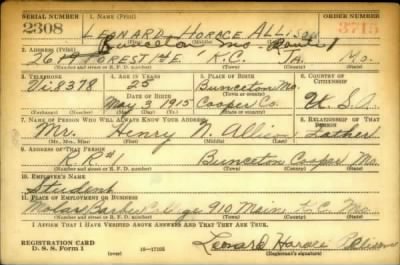 SERIAL NUMBER 1. NAME (Print) ORDER NUMBER
2308 LEONARD HORACE ALLISON 3715
Bunceton Mo. Route 1
2. ADDRESS (Print)
2619 FOREST K.C. JA. Mo.
(Number and street or R. F. D. number) (Town) (County) (State)
3. TELEPHONE 4. AGE IN YEARS 5. PLACE OF BIRTH 6. COUNTRY OF CITIZENSHIP
Vi. 8378 25 Bunceton Mo.
DATE OF BIRTH (Town or county)
May 3, 1915 Cooper Co. U.S.A.
(Exchange) (Number) (Mo.) (Day) (Yr.) (State or country)
7. NAME OF PERSON WHO WILL ALWAYS KNOW YOUR ADDRESS 8. RELATIONSHIP OF THAT PERSON
Mr. Henry N. Allison Father
(Mr., Mrs., Miss) (First) (Middle) (Last)
9. ADDRESS OF THAT PERSON
R.R.#1 Bunceton Cooper Mo.
(Number and street or R. F. D. number) (Town) (County) (State)
10. EMPLOYER'S NAME
Student
11. PLACE OF EMPLOYMENT OR BUSINESS
Molar Barber College 910 Main K.C. Mo.
(Number and street or R. F. D. number) (Town) (County) (State)
I AFFIRM THAT I HAVE VERIFIED ABOVE ANSWERS AND THAT THEY ARE TRUE.
REGISTRATION CARD
D. S. S. Form 1 (over) 16—17105 Leonard Horace Allison
(Registrant's signature)